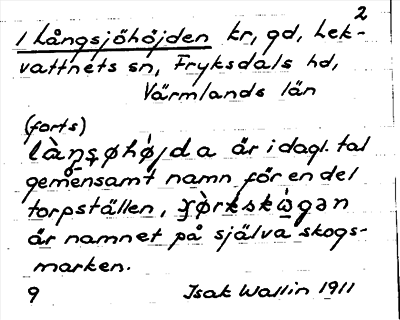 2
1 Långsjöhöjden kr, gd, Lek-
vattnets sn, Fryksdals hd,
Värmlands län
(forts)
är i dagl. tal
gemensamt namn för en del
torpställen,
är namnet på själva skogs-
marken.
9 Isak Wallin 1911